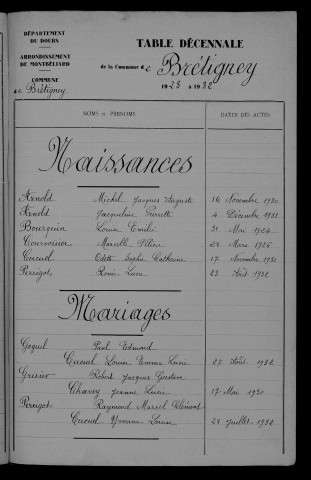 DÉPARTEMENT
DU DOUBS
ARRONDISSEMENT
DE MONTBÉLIARD
COMMUNE
de Brétigney
TABLE DÉCENNALE
de la Commune de Brétigney
1923 à 1932
NOMS et PRÉNOMS
DATES DES ACTES
Naissances
Arnold Michel Jacques Auguste 16 Novembre 1930
Arnold Jacqueline Pierrette 4 Décembre 1931
Bourquin Louis Emile 31 Mai 1924
Courvoisier Marcelle 28 Mars 1926
Cucuel Odette Sophie Catherine 17 Novembre 1931
Perrigot Lucie 23 Août 1932
Mariages
Goguel Paul Edmond
Cucuel Louise Emma Lucie 27 Août 1932
Grisier Robert Jacques Gustave
Charvey Jeanne Lucie 17 Mai 1930
Perrigot Raymond Marcel Clément
Cucuel Yvonne Louise 28 Juillet 1932